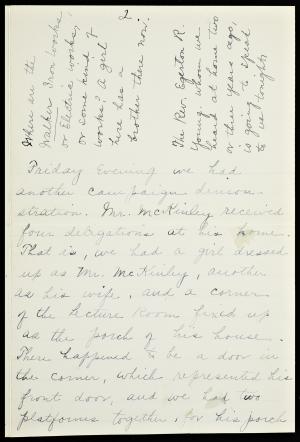 2
Where are the
Walker Iron works,
or Electric works,
or some kind of
works? A girl
here has a
brother there now.
The Rev. Egerton R.
Young whom we
heard at home two
or three years ago,
is going to speak
to us tonight.
Friday Evening we had
another campaign demon-
stration. Mr. McKinley received
four delegations at his home.
That is, we had a girl dressed
up as Mr. McKinley, another
as his wife, and a corner
of the Lecture Room fixed up
as the porch of his house.
There happened to be a door in
the corner, which represented his
front door, and we had two
platforms together, for his porch